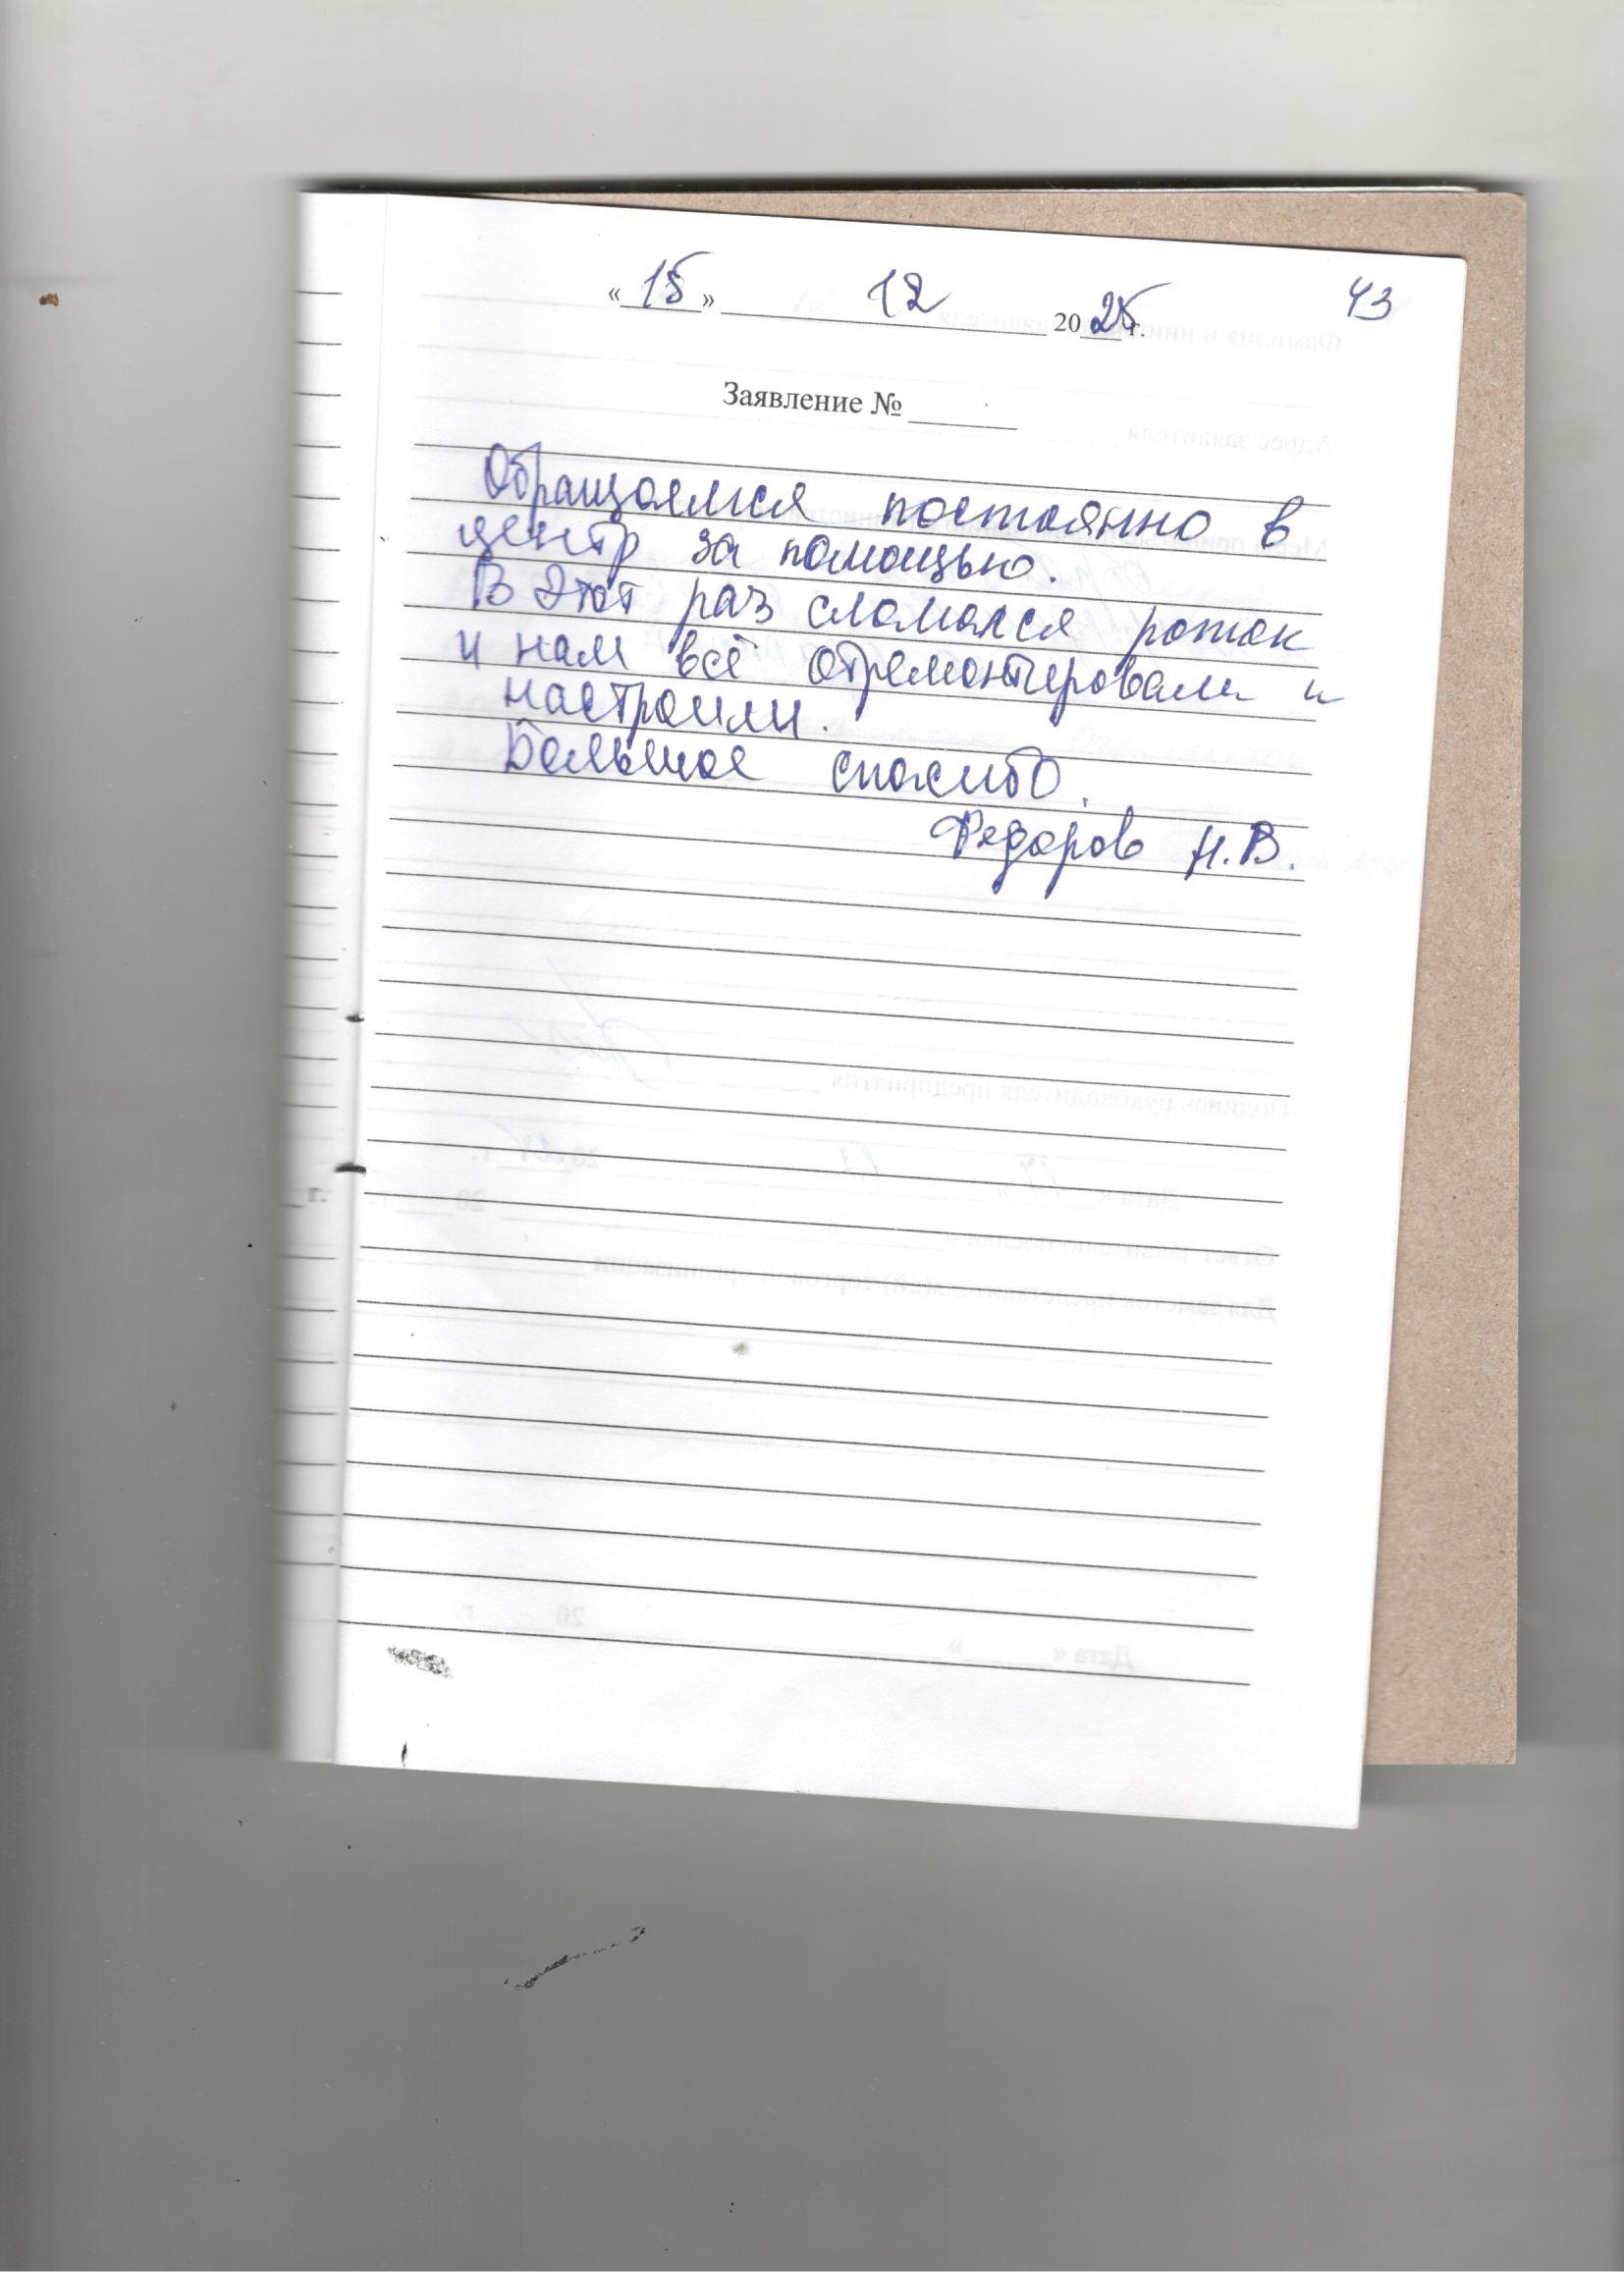 « 15 » 12 2025 г. 43
Заявление № ______
Обращаемся постоянно в
центр за помощью.
В этот раз сломался
и нам всё отремонтировали и
настроили.
Большое спасибо.
Федоров Н.В.